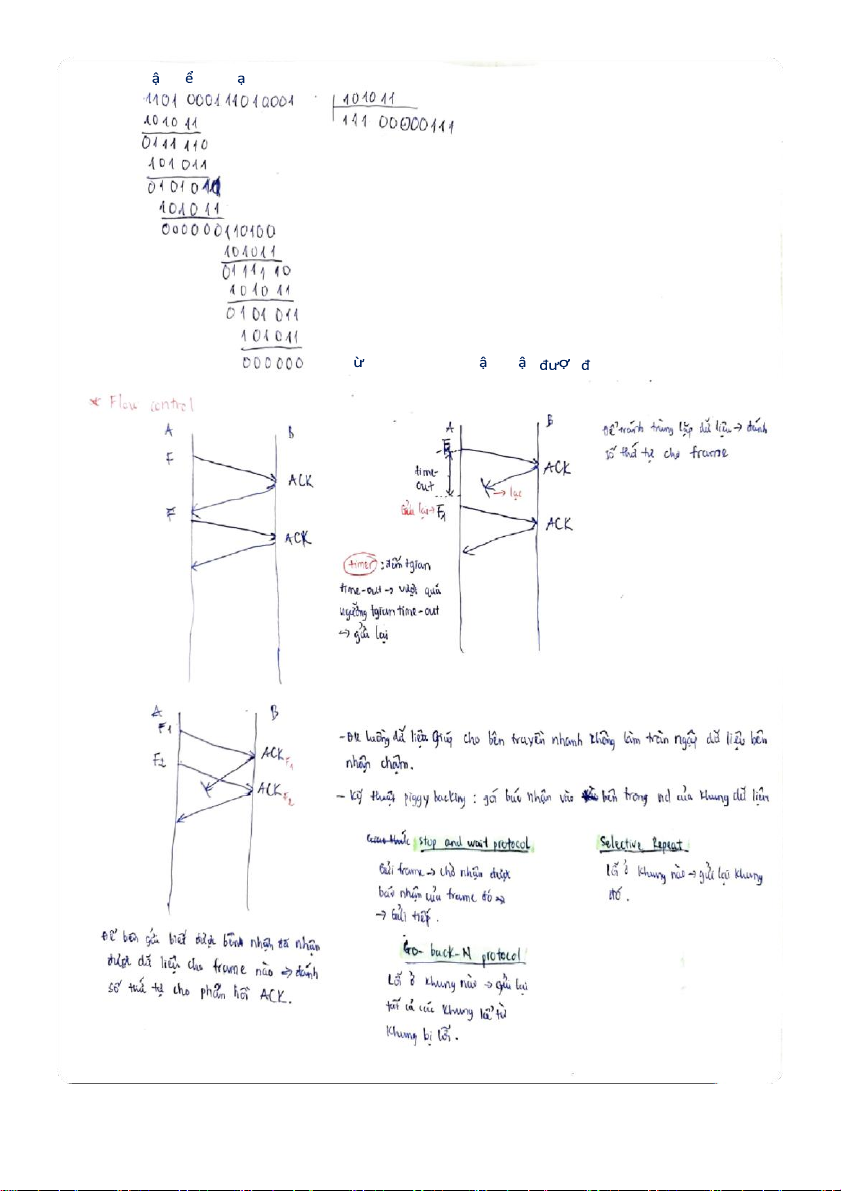 ậ ể ạ
1101 0001 11010001 101011
101011 111 00000111
011110
101011
0101011
101011
000000110100
101011
0111110
101011
0101011
101011
000000
ừ ậ ậ được đ
* Flow control
A B
F
ACK
F
ACK
A B
F1
time-out
ACK
→ lạc
Gửi lại → F1
ACK
Để tránh trùng lặp dữ liệu → đánh
số thứ tự cho frame
timer : đếm tgian
time-out → vượt quá
ngưỡng tgian time-out
→ gửi lại
A B
F1
F2
ACK F1
ACK F2
Để bên gửi biết được bên nhận đã nhận
được dữ liệu cho frame nào → đánh
số thứ tự cho phản hồi ACK.
- ĐK luồng dữ liệu giúp cho bên truyền nhanh không làm tràn ngập dữ liệu bên
nhận chậm.
- Kỹ thuật piggy backing : gói báo nhận vào bên trong nd của khung dữ liệu
stop and wait protocol
Gửi frame → chờ nhận được
báo nhận của frame đó
→ Gửi tiếp.
Go-back-N protocol
Lỗi ở khung nào → gửi lại
tất cả các khung kể từ
khung bị lỗi.
Selective Repeat
Lỗi ở khung nào → gửi lại khung
đó.